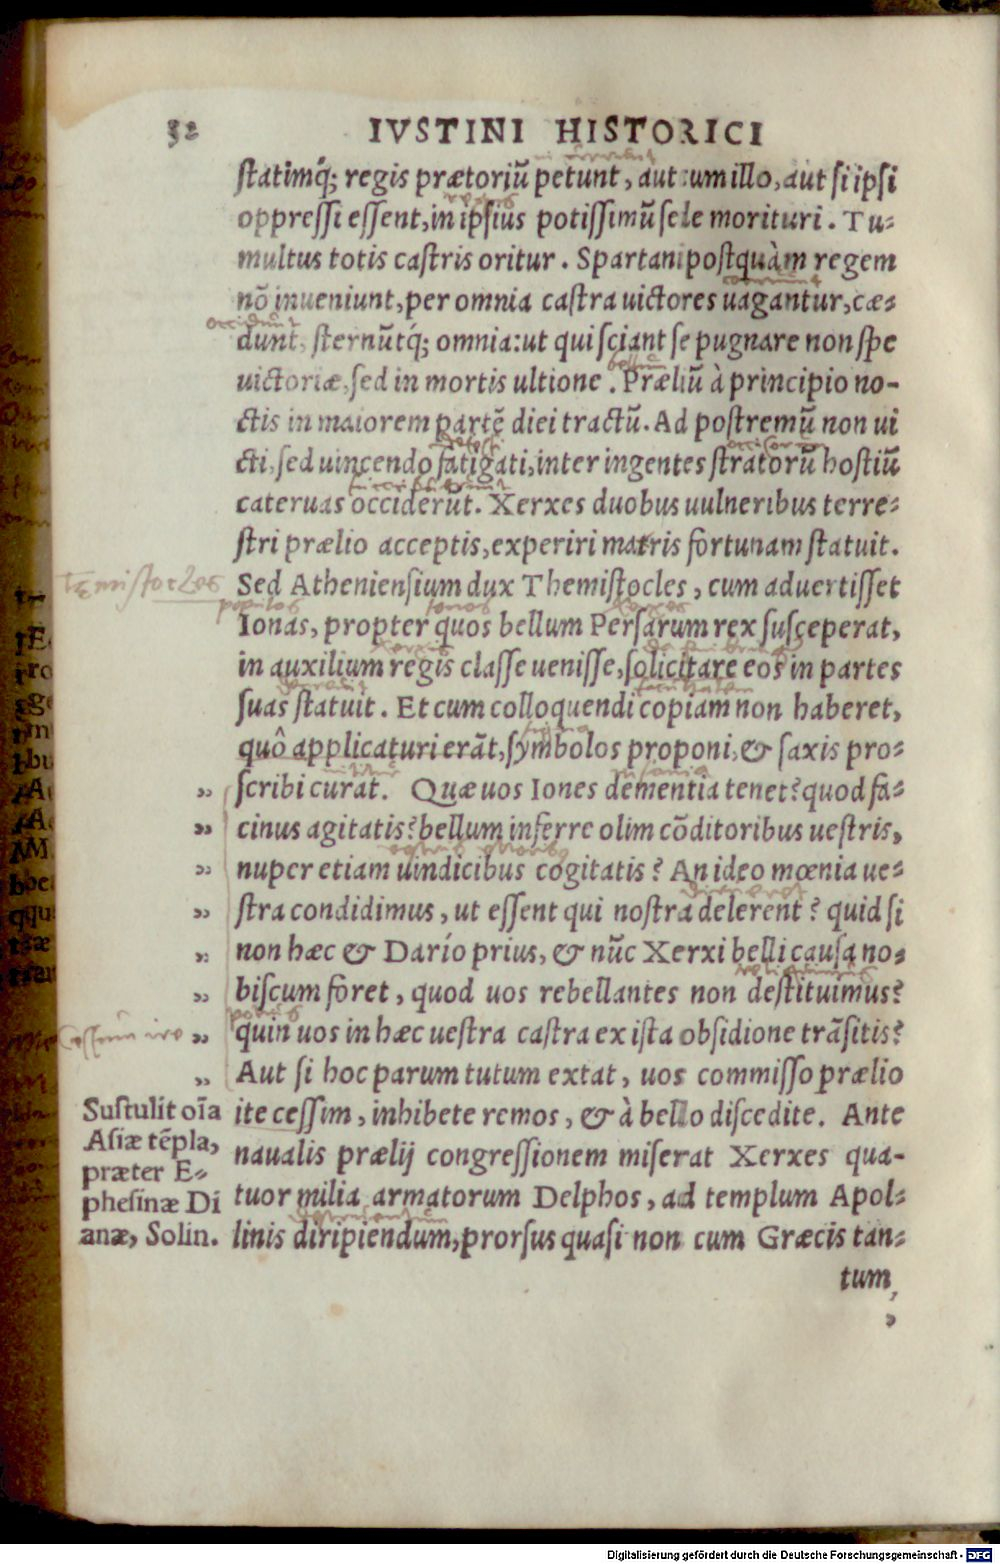 32 IVSTINI HISTORICI
statimq́; regis prætoriũ petunt, aut cum illo, aut si ipsi
oppressi essent, in ipsius potissimũ sede morituri. Tu-
multus totis castris oritur. Spartani postquàm regem
nõ inueniunt, per omnia castra uictores uagantur, cæ-
occidunt
dunt, sternũtq́; omnia: ut qui sciant se pugnare non spe
bellum
uictoriæ, sed in mortis ultione. Præliũ à principio no-
ctis in maiorem partẽ diei tractũ. Ad postremũ non ui
cti, sed uincendo fatigati, inter ingentes stratorũ hostiũ
cateruas occiderũt. Xerxes duobus uulneribus terre-
stri prælio acceptis, experiri matris fortunam statuit.
Sed Atheniensium dux Themistocles, cum aduertisset
populos ionas xerxes
Ionas, propter quos bellum Persarum rex susceperat,
xerxis
in auxilium regis classe uenisse, solicitare eos in partes
decreuit facultatem
suas statuit. Et cum colloquendi copiam non haberet,
signa
quô applicaturi erãt, symbolos proponi, & saxis pro-
„ scribi curat. Quæ uos Iones dementia tenet? quod fa-
„ cinus agitatis? bellum inferre olim cõditoribus uestris,
„ nuper etiam uindicibus cogitatis? An ideo mœnia ue-
„ stra condidimus, ut essent qui nostra delerent? quid si
„ non hæc & Darío prius, & nũc Xerxi belli causa no-
„ biscum foret, quod uos rebellantes non destituimus?
potius
„ quin uos in hæc uestra castra ex ista obsidione trãsitis?
„ Aut si hoc parum tutum extat, uos commisso prælio
ite cessim, inhibete remos, & à bello discedite. Ante
naualis prælij congressionem miserat Xerxes qua-
tuor milia armatorum Delphos, ad templum Apol-
linis diripiendum, prorsus quasi non cum Græcis tan-
tum,
Sustulit oĩa
Asiæ tẽpla,
præter E-
phesinæ Di
anæ, Solin.
Digitalisierung gefördert durch die Deutsche Forschungsgemeinschaft - DFG